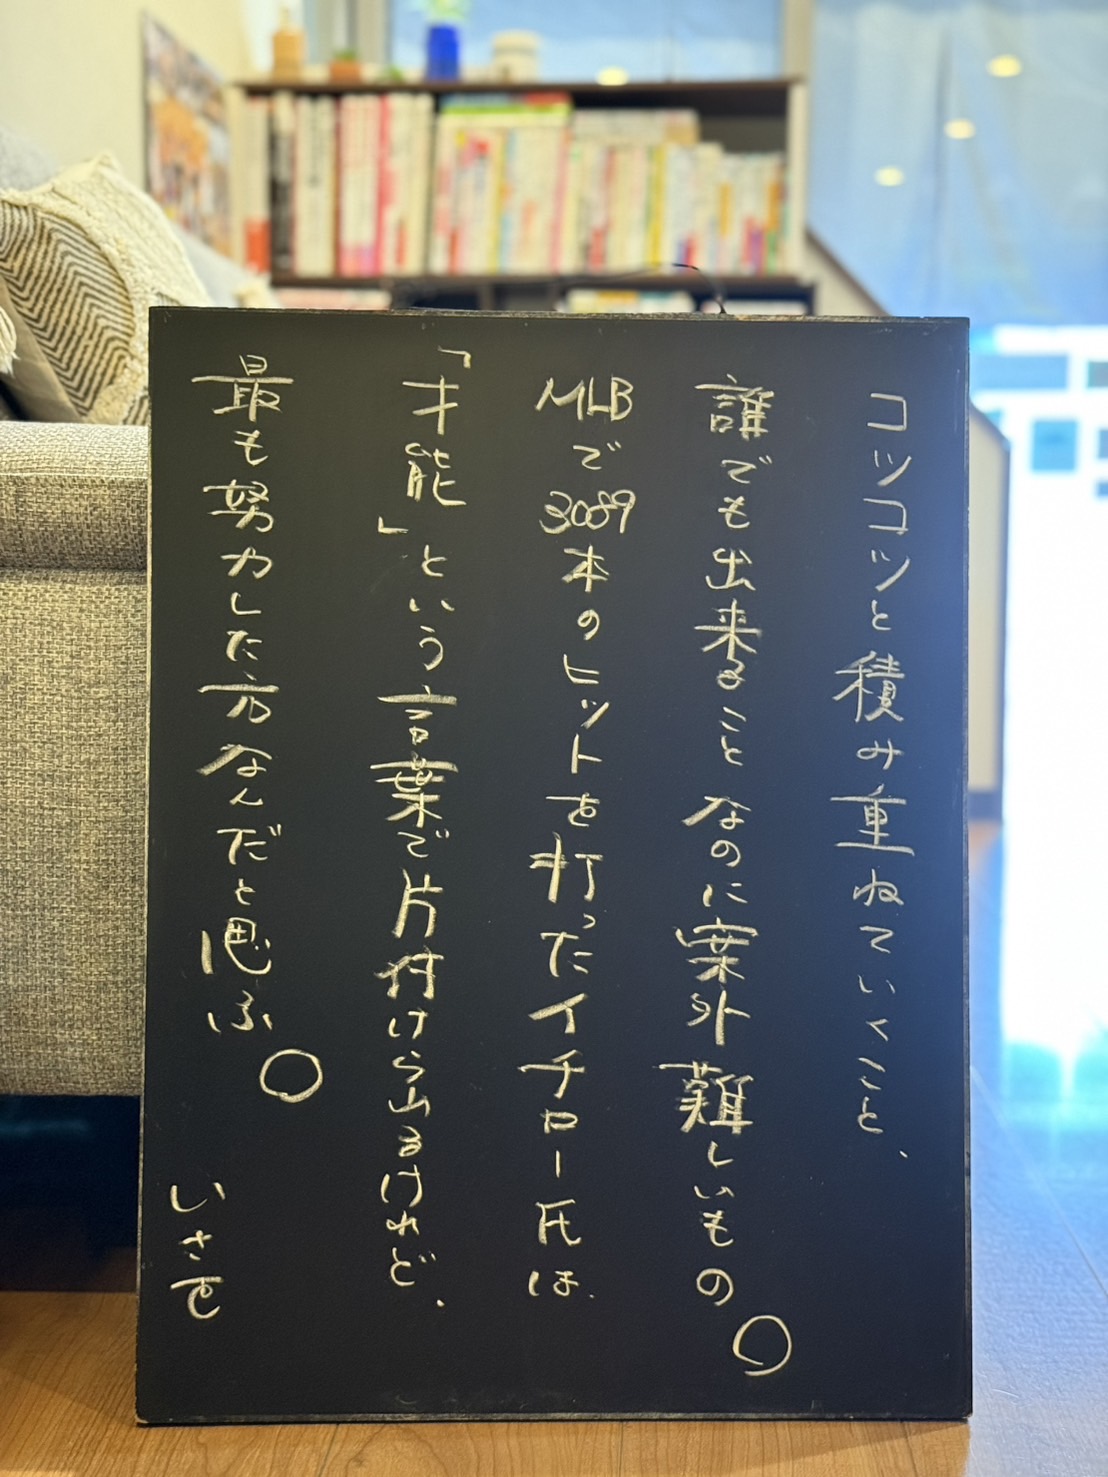 コツコツと積み重ねていくこと、
誰でも出来ることなのに案外難しいもの。
MLBで3089本のヒットを打ったイチロー氏は、
「才能」という言葉で片付けられるけれど、
最も努力した方なんだと思ふ。
いさを